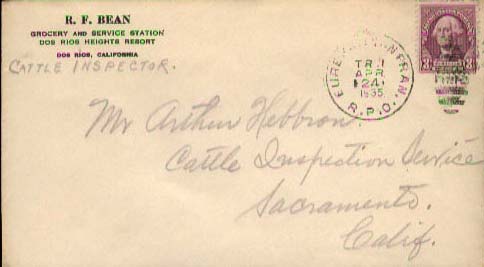 R. F. BEAN
GROCERY AND SERVICE STATION
DOS RIOS HEIGHTS RESORT
DOS RIOS, CALIFORNIA
CATTLE INSPECTOR.
TR. 1
APR
24
1935
R.P.O.
3
3
Mr Arthur Hebbron.
Cattle Inspection Service
Sacramento.
Calif.